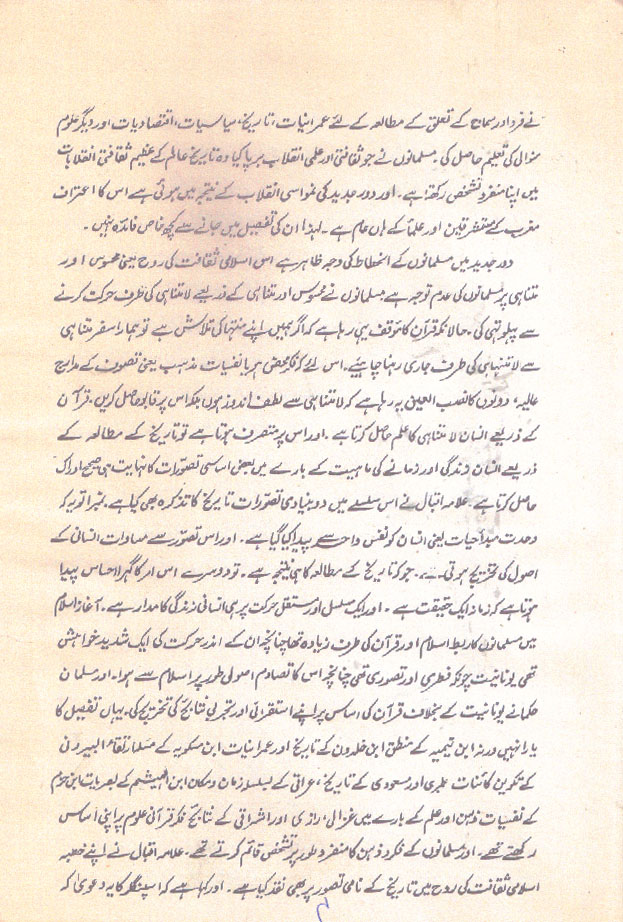 نے فرد اور سماج کے تعلق کے مطالعہ کے لئے عمرانیات، تاریخ، سیاسیات، اقتصادیات اور دیگر علوم
کی تعلیم حاصل کی۔ مسلمانوں نے جو ثقافتی اور علمی انقلاب برپا کیا وہ تاریخ عالم کے عظیم ثقافتی انقلابات
میں اپنا منفرد تشخص رکھتا ہے۔ اور دور جدید کی نمو اسی انقلاب کے نتیجہ میں ہوئی ہے اس کا اعتراف
مغرب کے مستشرقین اور علماء کے ہاں عام ہے۔ لہذا ان کی تفصیل میں جانے سے کچھ خاص فائدہ نہیں۔
دور جدید میں مسلمانوں کے انحطاط کی وجہ ظاہر ہے اس اسلامی ثقافت کی روح یعنی محسوس اور
متناہی پر مسلمانوں کی عدم توجہ ہے مسلمانوں نے محسوس اور متناہی کے ذریعے لامتناہی کی طرف حرکت کرنے
سے پہلو تہی کی۔ حالانکہ قرآن کا موقف یہی رہا ہے کہ اگر ہمیں اپنے منتہا کی تلاش ہے تو ہمارا سفر متناہی
سے لامتناہی کی طرف جاری رہنا چاہیئے۔ اس لئے کہ فکر محض ہو یا نفسیات مذہب یعنی تصوف کے مدارج
عالیہ، دونوں کا نصب العین یہ رہا ہے کہ لامتناہی سے لطف اندوز ہوں بلکہ اس پر قابو حاصل کریں۔ قرآن
کے ذریعے انسان لامتناہی کا علم حاصل کرتا ہے۔ اور اس پر متصرف ہوتا ہے تو تاریخ کے مطالعہ کے
ذریعے انسان زندگی اور زمانے کی ماہیت کے بارے میں بعض اساسی تصورات کا نہایت ہی صحیح ادراک
حاصل کرتا ہے۔ علامہ اقبال نے اس سلسلے میں دو بنیادی تصورات تاریخ کا تذکرہ بھی کیا ہے۔ نمبر۱ تو یہ کہ
وحدت مبدأ حیات یعنی انسان کو نفس واحد سے پیدا کیا گیا ہے۔ اور اس تصور سے مساوات انسانی کے
اصول کی تخریج ہوتی ہے۔ جو کہ تاریخ کے مطالعہ کا ہی نتیجہ ہے۔ تو دوسرے اس امر کا گہرا احساس پیدا
ہوتا ہے کہ زمانہ ایک حقیقت ہے۔ اور ایک مسلسل اور مستقل حرکت پر ہی انسانی زندگی کا مدار ہے۔ آغاز اسلام
میں مسلمانوں کا ربط اسلام اور قرآن کی طرف زیادہ تھا چنانچہ ان کے اندر حرکت کی ایک شدید خواہش
تھی یونانیت چونکہ فطری اور تصوری تھی چنانچہ اس کا تصادم اصولی طور پر اسلام سے ہوا۔ اور مسلمان
حکمائے یونانیت کے بخلاف قرآن کی اساس پر اپنے استقرائی اور تجربی نتائج کی تخریج کی۔ یہاں تفصیل کا
یارا نہیں ورنہ ابن تیمیہ کے منطق ابن خلدون کے تاریخ اور عمرانیات ابن مسکویہ کے مسئلہ ارتقاء البیرونی
کے تکوین کائنات طبری اور مسعودی کے تاریخ، عراقی کے بسلسلہ زمان و مکان ابن الہیشم کے بصریات ابن حزم
کے نفسیات ذہن اور علم کے بارے میں غزالی، رازی اور اشراقی کے نتائج فکر قرآنی علوم پر اپنی اساس
رکھتے تھے۔ اور مسلمانوں کے فکر و ذہن کا منفرد طور پر تشخص قائم کرتے تھے۔ علامہ اقبال نے اپنے خطبہ
اسلامی ثقافت کی روح میں تاریخ کے نامی تصور پر بھی نقد کیا ہے۔ اور کہا ہے کہ اسپنگلر کا یہ دعویٰ کہ